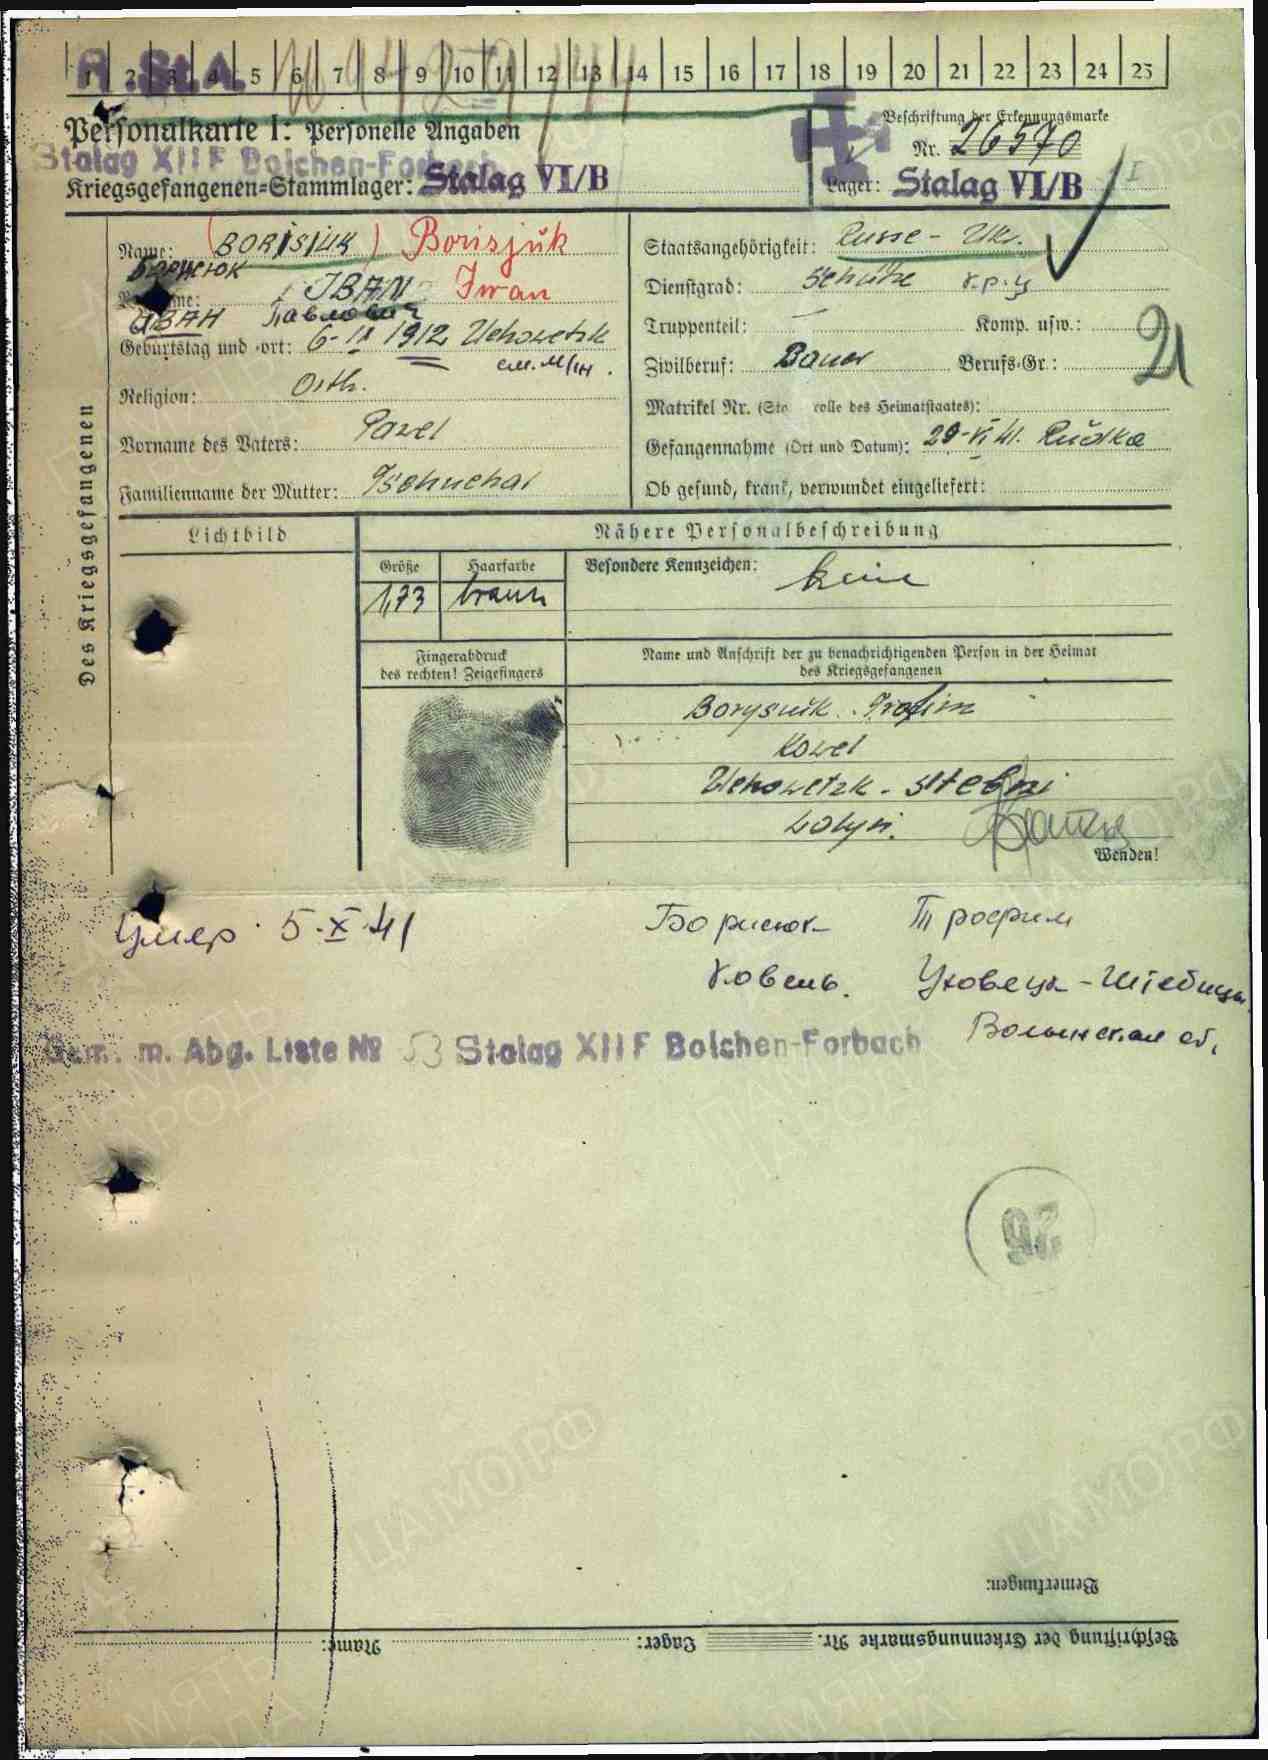 1 2 3 4 5 6 7 8 9 10 11 12 13 14 15 16 17 18 19 20 21 22 23 24 25
R.St.A.
Personalkarte I: Personelle Angaben
Beschriftung der Erkennungsmarke
Nr. 26570
Stalag XII F Bolchen-Forbach
Kriegsgefangenen=Stammlager: Stalag VI/B
Lager: Stalag VI/B
Des Kriegsgefangenen
Name: (BORISIUK) Borisjuk
Борисюк
IBAN Iwan
ИВАН Павлович
Geburtstag und =ort: 6-IX 1912 Uchowetzk
см. м/пн.
Religion: Orth.
Vorname des Vaters: Pavel
Familienname der Mutter:
Staatsangehörigkeit: Russe - Ukr.
Dienstgrad: Schütze кр-ц
Truppenteil: — Komp. usw.:
21
Zivilberuf: Bauer Berufs=Gr.:
Matrikel Nr. (Sta rolle des Heimatstaates):
Gefangennahme (Ort und Datum): 29-VI 41. Rudka
Ob gesund, krank, verwundet eingeliefert:
Lichtbild
Nähere Personalbeschreibung
Größe Haarfarbe Besondere Kennzeichen: keine
1,73 braun
Fingerabdruck
des rechten! Zeigefingers
Name und Anschrift der zu benachrichtigenden Person in der Heimat
des Kriegsgefangenen
Borysuik Trofim
Kowel
Uchowetzk - Stebni
Wolyn.
Wenden!
Умер 5.X.41
Борисюк Трофим
Ковель. Уховецк - Штебицы
Волынская об.
Gem. m. Abg. Liste № 53 Stalag XII F Bolchen-Forbach
26
Bemerkungen:
Beschriftung der Erkennungsmarke Nr. Lager: Name:
ПАМЯТЬ НАРОДА
ЦАМО.РФ